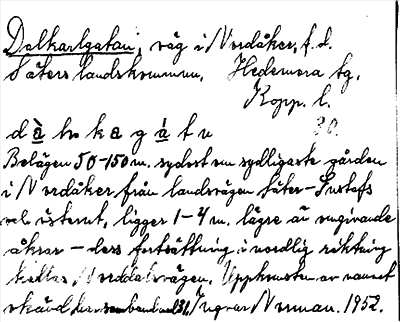 Dalkarlgatan, väg i Nordåker, f.d.
Säters landskommun, Hedemora tg,
Kopp. l.
d à h k a g á t u 30.
Belägen 50-150 m. sydost om sydligaste gården
i Nordåker från landsvägen Säter-Gustafs
och österut, ligger 1-4 m. lägre än omgivande
åkrar – dess fortsättning i nordlig riktning
kallas Norddalsvägen. Uppkomsten av namnet
okänd, Ingvar Norman. 1952.